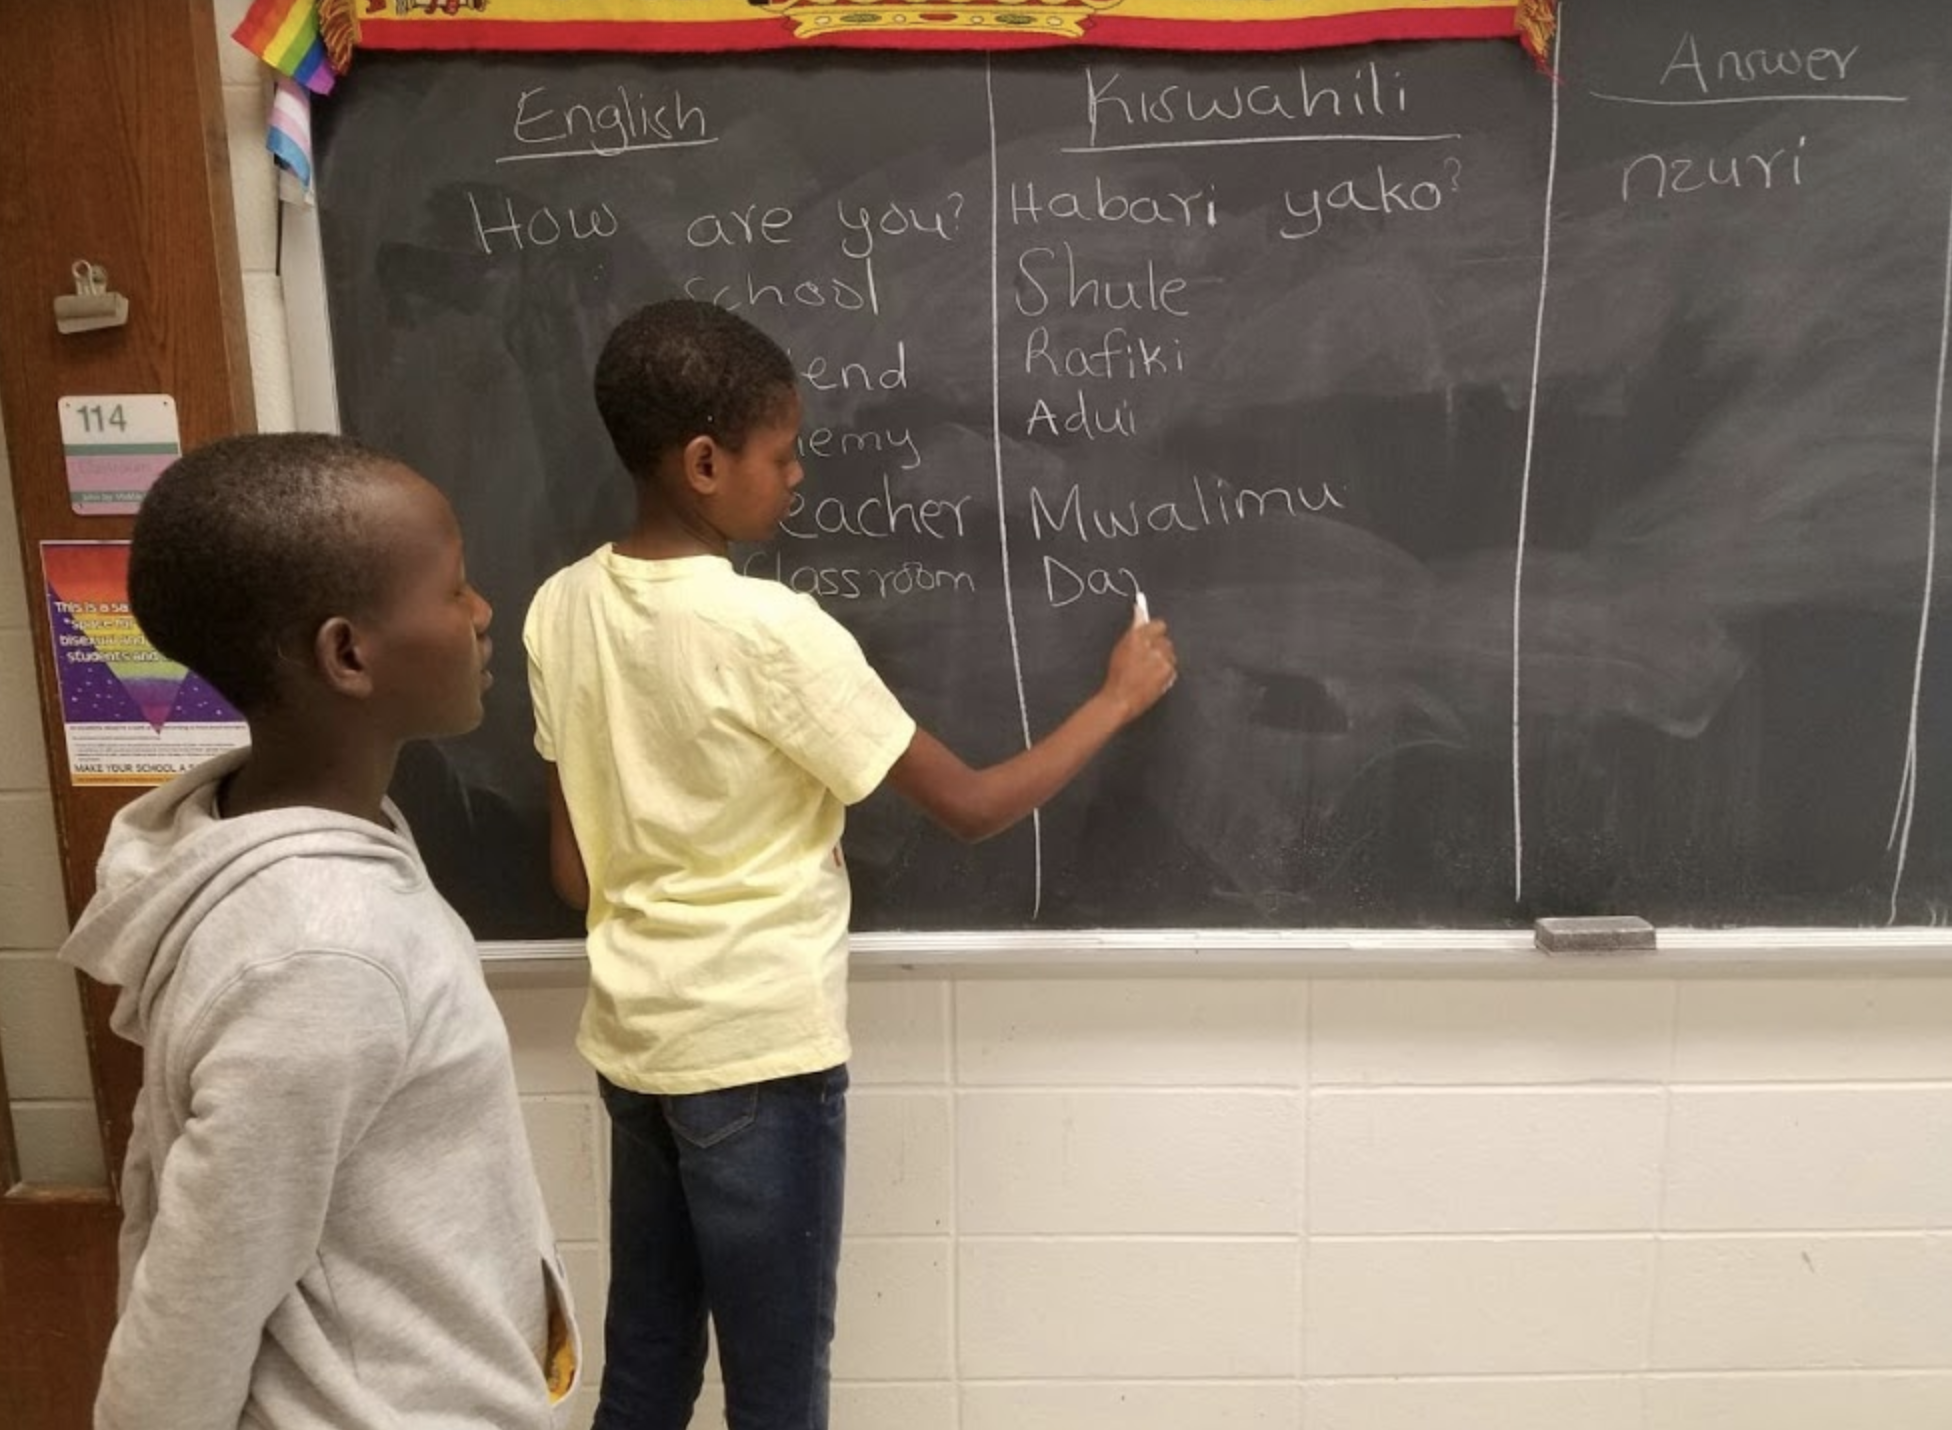 English
Kiswahili
Answer
How are you?
Habari yako?
nzuri
School
Shule
end
Rafiki
emy
Adui
eacher
Mwalimu
Classroom
Da
114
Classroom
This is a sa
space for
bisexual and
students and
MAKE YOUR SCHOOL A S